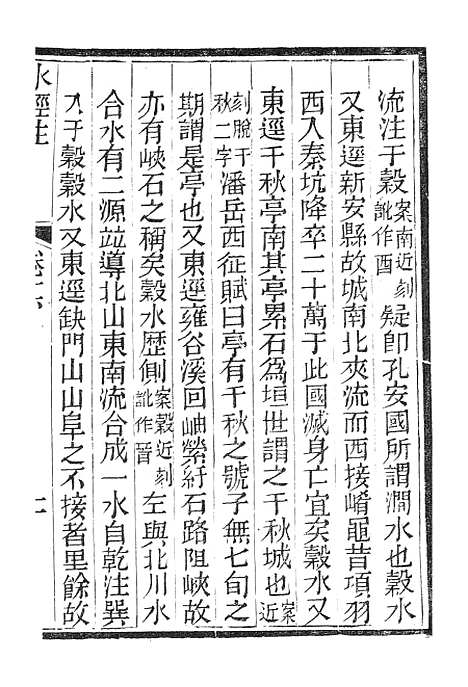 流注于穀案南近刻訛作酉疑卽孔安國所謂澗水也穀水
又東逕新安縣故城南北夾流而西接崤黽昔項羽
西入秦坑降卒二十萬于此國滅身亡宜矣穀水又
東逕千秋亭南其亭累石爲垣世謂之千秋城也案近
刻脫千秋二字潘岳西征賦曰亭有千秋之號子無七旬之
期謂是亭也又東逕雍谷溪回岫縈紆石路阻峽故
亦有峽石之稱矣穀水歷側案穀近刻訛作晉左與北川水
合水有二源竝導北山東南流合成一水自乾注巽
入于穀穀水又東逕缺門山山阜之不接者里餘故
水經注
卷十六